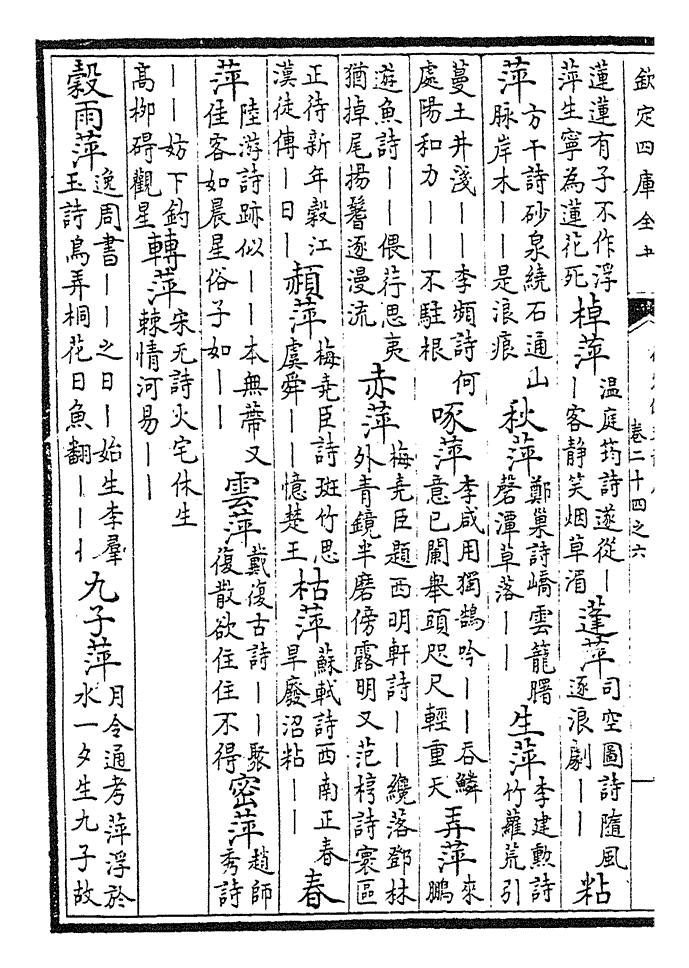 欽定四庫全
卷二十四之六
蓮蓮有子不作浮萍生寧為蓮花死 棹萍 温庭筠詩遂從｜｜客静笑烟草湄 蓬萍 司空圖詩隨風逐浪劇｜｜ 粘
萍 方干詩砂泉繞石通山脉岸木｜｜是浪痕 秋萍 鄭巢詩嶠雲籠曙磬潭草落｜｜ 生萍 李建勲詩竹蘿荒引
蔓土井淺｜｜李頻詩何處陽和力｜｜不駐根 啄萍 李咸用獨鵠吟｜｜吞鱗意已闌舉頭咫尺輕重天 弄萍 來鵬
遊魚詩｜｜偎荇思夷猶掉尾揚鬐逐漫流 赤萍 梅堯臣題西明軒詩｜｜纔落鄧林外青鏡半磨傍露明又范梈詩寰區
正待新年穀江漢徒傳｜日｜ 頳萍 梅堯臣詩斑竹思虞舜｜｜憶楚王 枯萍 蘇軾詩西南正春旱廢沼粘｜｜ 春
萍 陸游詩跡似｜｜本無蔕又佳客如晨星俗子如｜｜ 雲萍 戴復古詩｜｜聚復散欲住住不得 密萍 趙師秀詩
｜｜妨下釣高栁碍觀星 轉萍 宋无詩火宅休生棘情河易｜｜
穀雨萍 逸周書｜｜之日｜始生李羣玉詩鳥弄桐花日魚翻｜｜｜ 九子萍 月令通考萍浮於水一夕生九子故